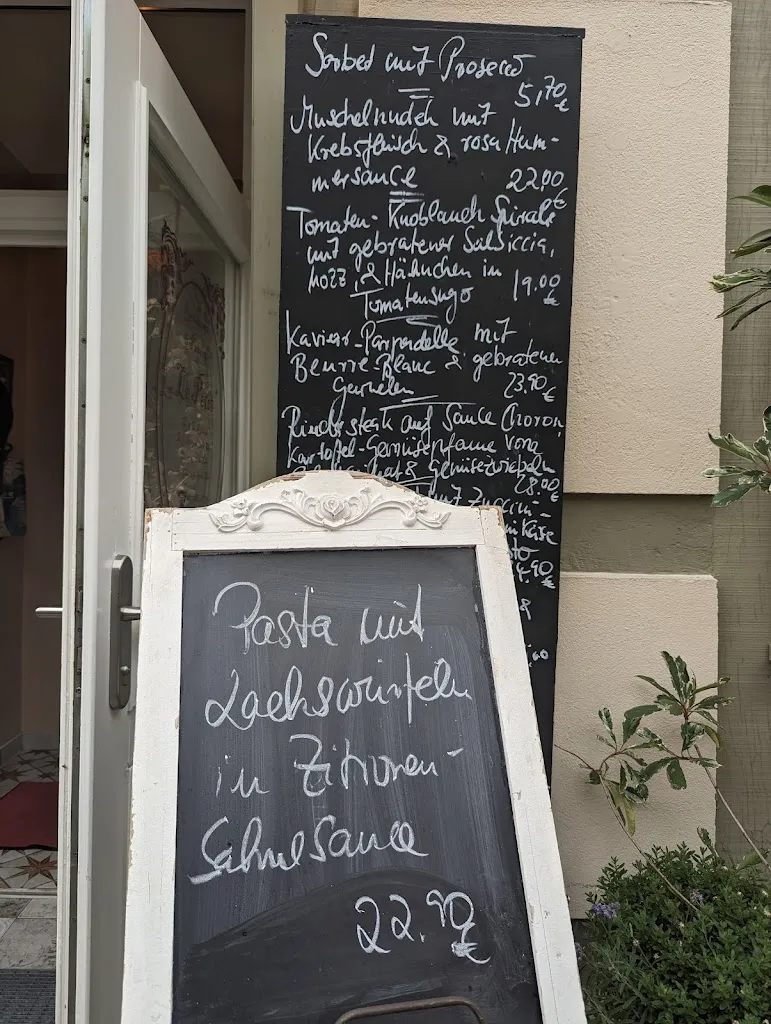 Sorbet mit Prosecco
5,70 €
Muschelnudeln mit
Krebsfleisch & rosa Hum-
mersauce 22.00 €
Tomaten-Knoblauch Spirale
mit gebratener Salsiccia,
Mozz. & Hähnchen in 19.00 €
Tomatensugo
Kaviar-Parpardelle mit
Beurre-Blanc & gebratenen
Garnelen 23.90 €
Rindersteak auf Sauce Choron,
Kartoffel-Gemüsepfanne vom
& Gemüsezwiebeln
28.00 €
mit Zucchi-
Käse
4.90 €
&
Pasta mit
Lachswürfeln
in Zitronen-
Sahnesauce
22.90 €